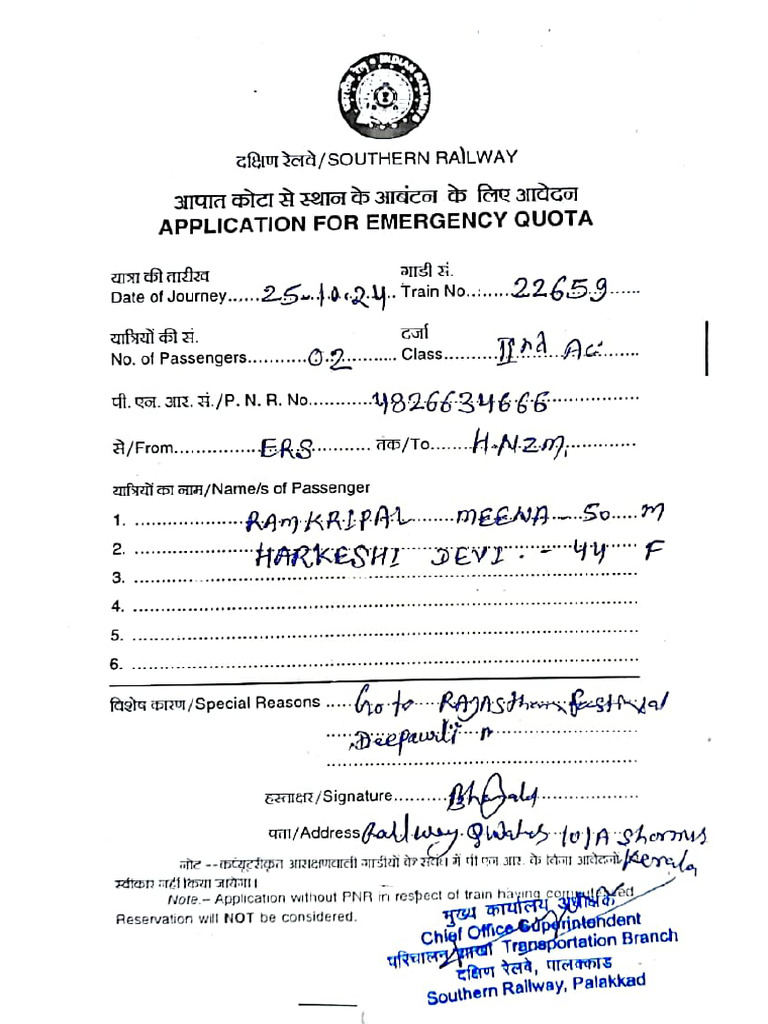 INDIAN RAILWAYS
दक्षिण रेलवे/SOUTHERN RAILWAY
आपात कोटा से स्थान के आबंटन के लिए आवेदन
APPLICATION FOR EMERGENCY QUOTA
यात्रा की तारीख गाडी सं.
Date of Journey......25-10.24.. Train No..:......22659......
यात्रियों की सं. दर्जा
No. of Passengers...........02........... Class..........IInd Ac.......
पी. एन. आर. सं./P. N. R. No............4826634666................
से/From...............ERS............ तंक/To.......H.NZM.............
यात्रियों का नाम/Name/s of Passenger
1. ................RAMKRIPAL MEENA - 50 M
2. ................HARKESHI DEVI. - 44 F
3. ................................
4. ................................
5. ................................
6. ................................
विशेष कारण/Special Reasons .....Go to RAJASthan festival
Deepawli
हस्ताक्षर/Signature..........
पता/Address Railway 101A Kerala
नोट --कंप्यूटरीकृत आरक्षणवाली गाडीयों के संबंध में पी एन आर. के बिना आवेदनों
स्वीकार नहीं किया जायेगा।
Note.– Application without PNR in respect of train having computerized
Reservation will NOT be considered.
मुख्य कार्यालय अधीक्षक
Chief Office Superintendent
परिचालन शाखा Transportation Branch
दक्षिण रेलवे, पालक्काड
Southern Railway, Palakkad